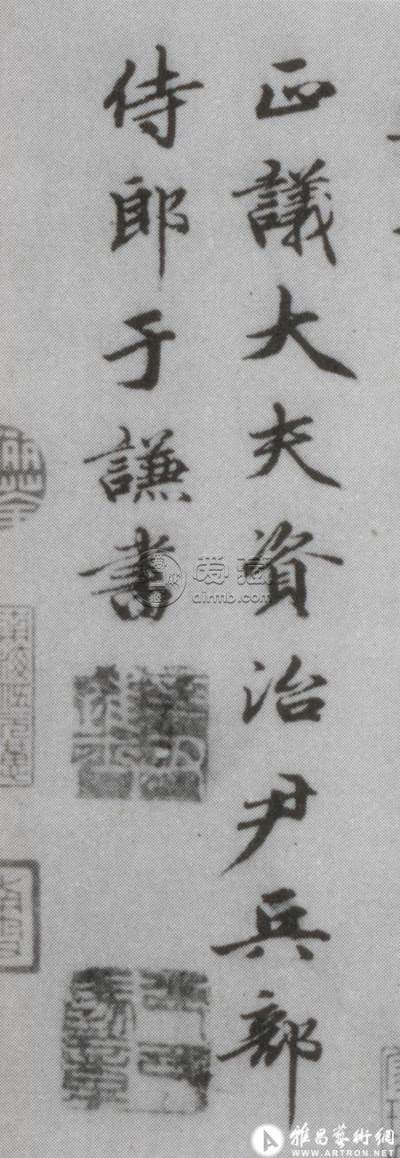 正議大夫資治尹兵部
侍郎于謙書
爱藏
airmb.com
雅昌藝術網
WWW.ARTRON.NET